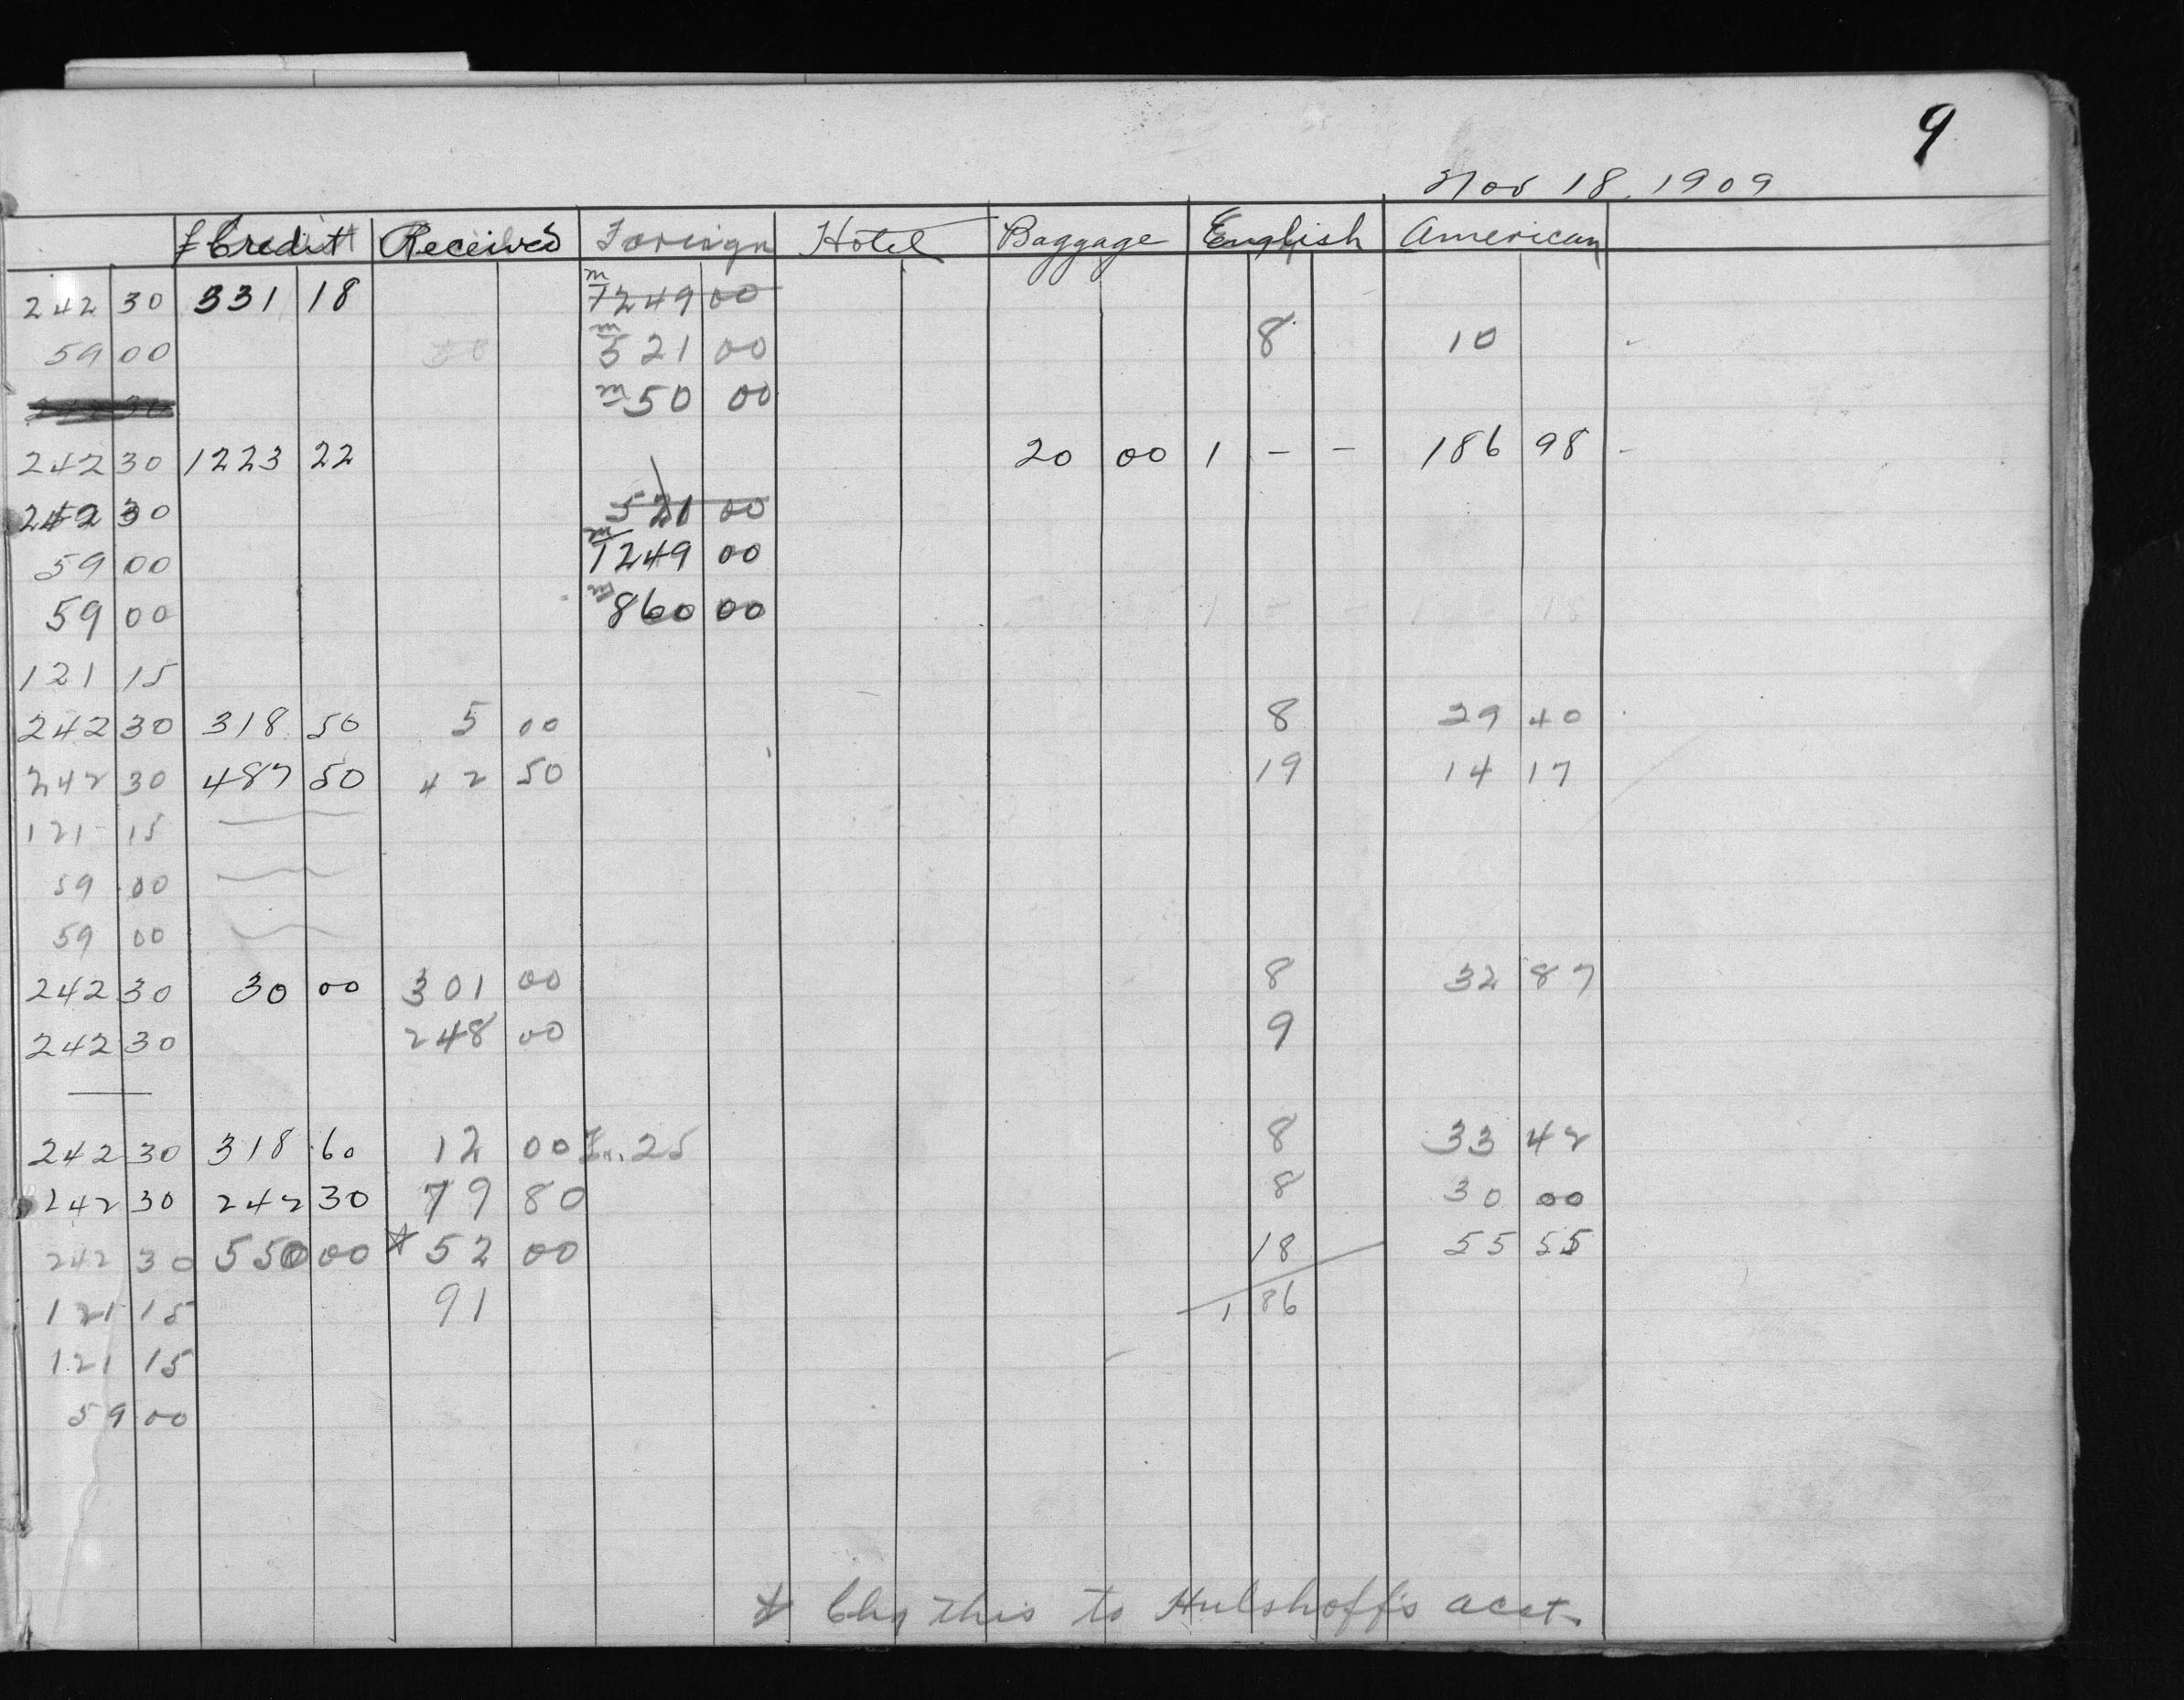 9
Nov 18, 1909
£ Credit Received Foreign Hotel Baggage English American
242 30 331 18 m 1249 00
59 00 m 521 00 8 10
242 30 m 50 00
242 30 1223 22 20 00 1 - - 186 98
242 30 521 00
59 00 m 1249 00
59 00 m 860 00
121 15
242 30 318 50 5 00 8 29 40
242 30 487 50 42 50 19 14 17
121 15
59 00
59 00
242 30 30 00 301 00 8 32 87
242 30 248 00 9
242 30 318 60 12 00 25 8 33 42
242 30 242 30 79 80 8 30 00
242 30 550 00 * 52 00 18 55 55
121 15 91 1 86
121 15
59 00
* Chg this to Hulshoff's acct.